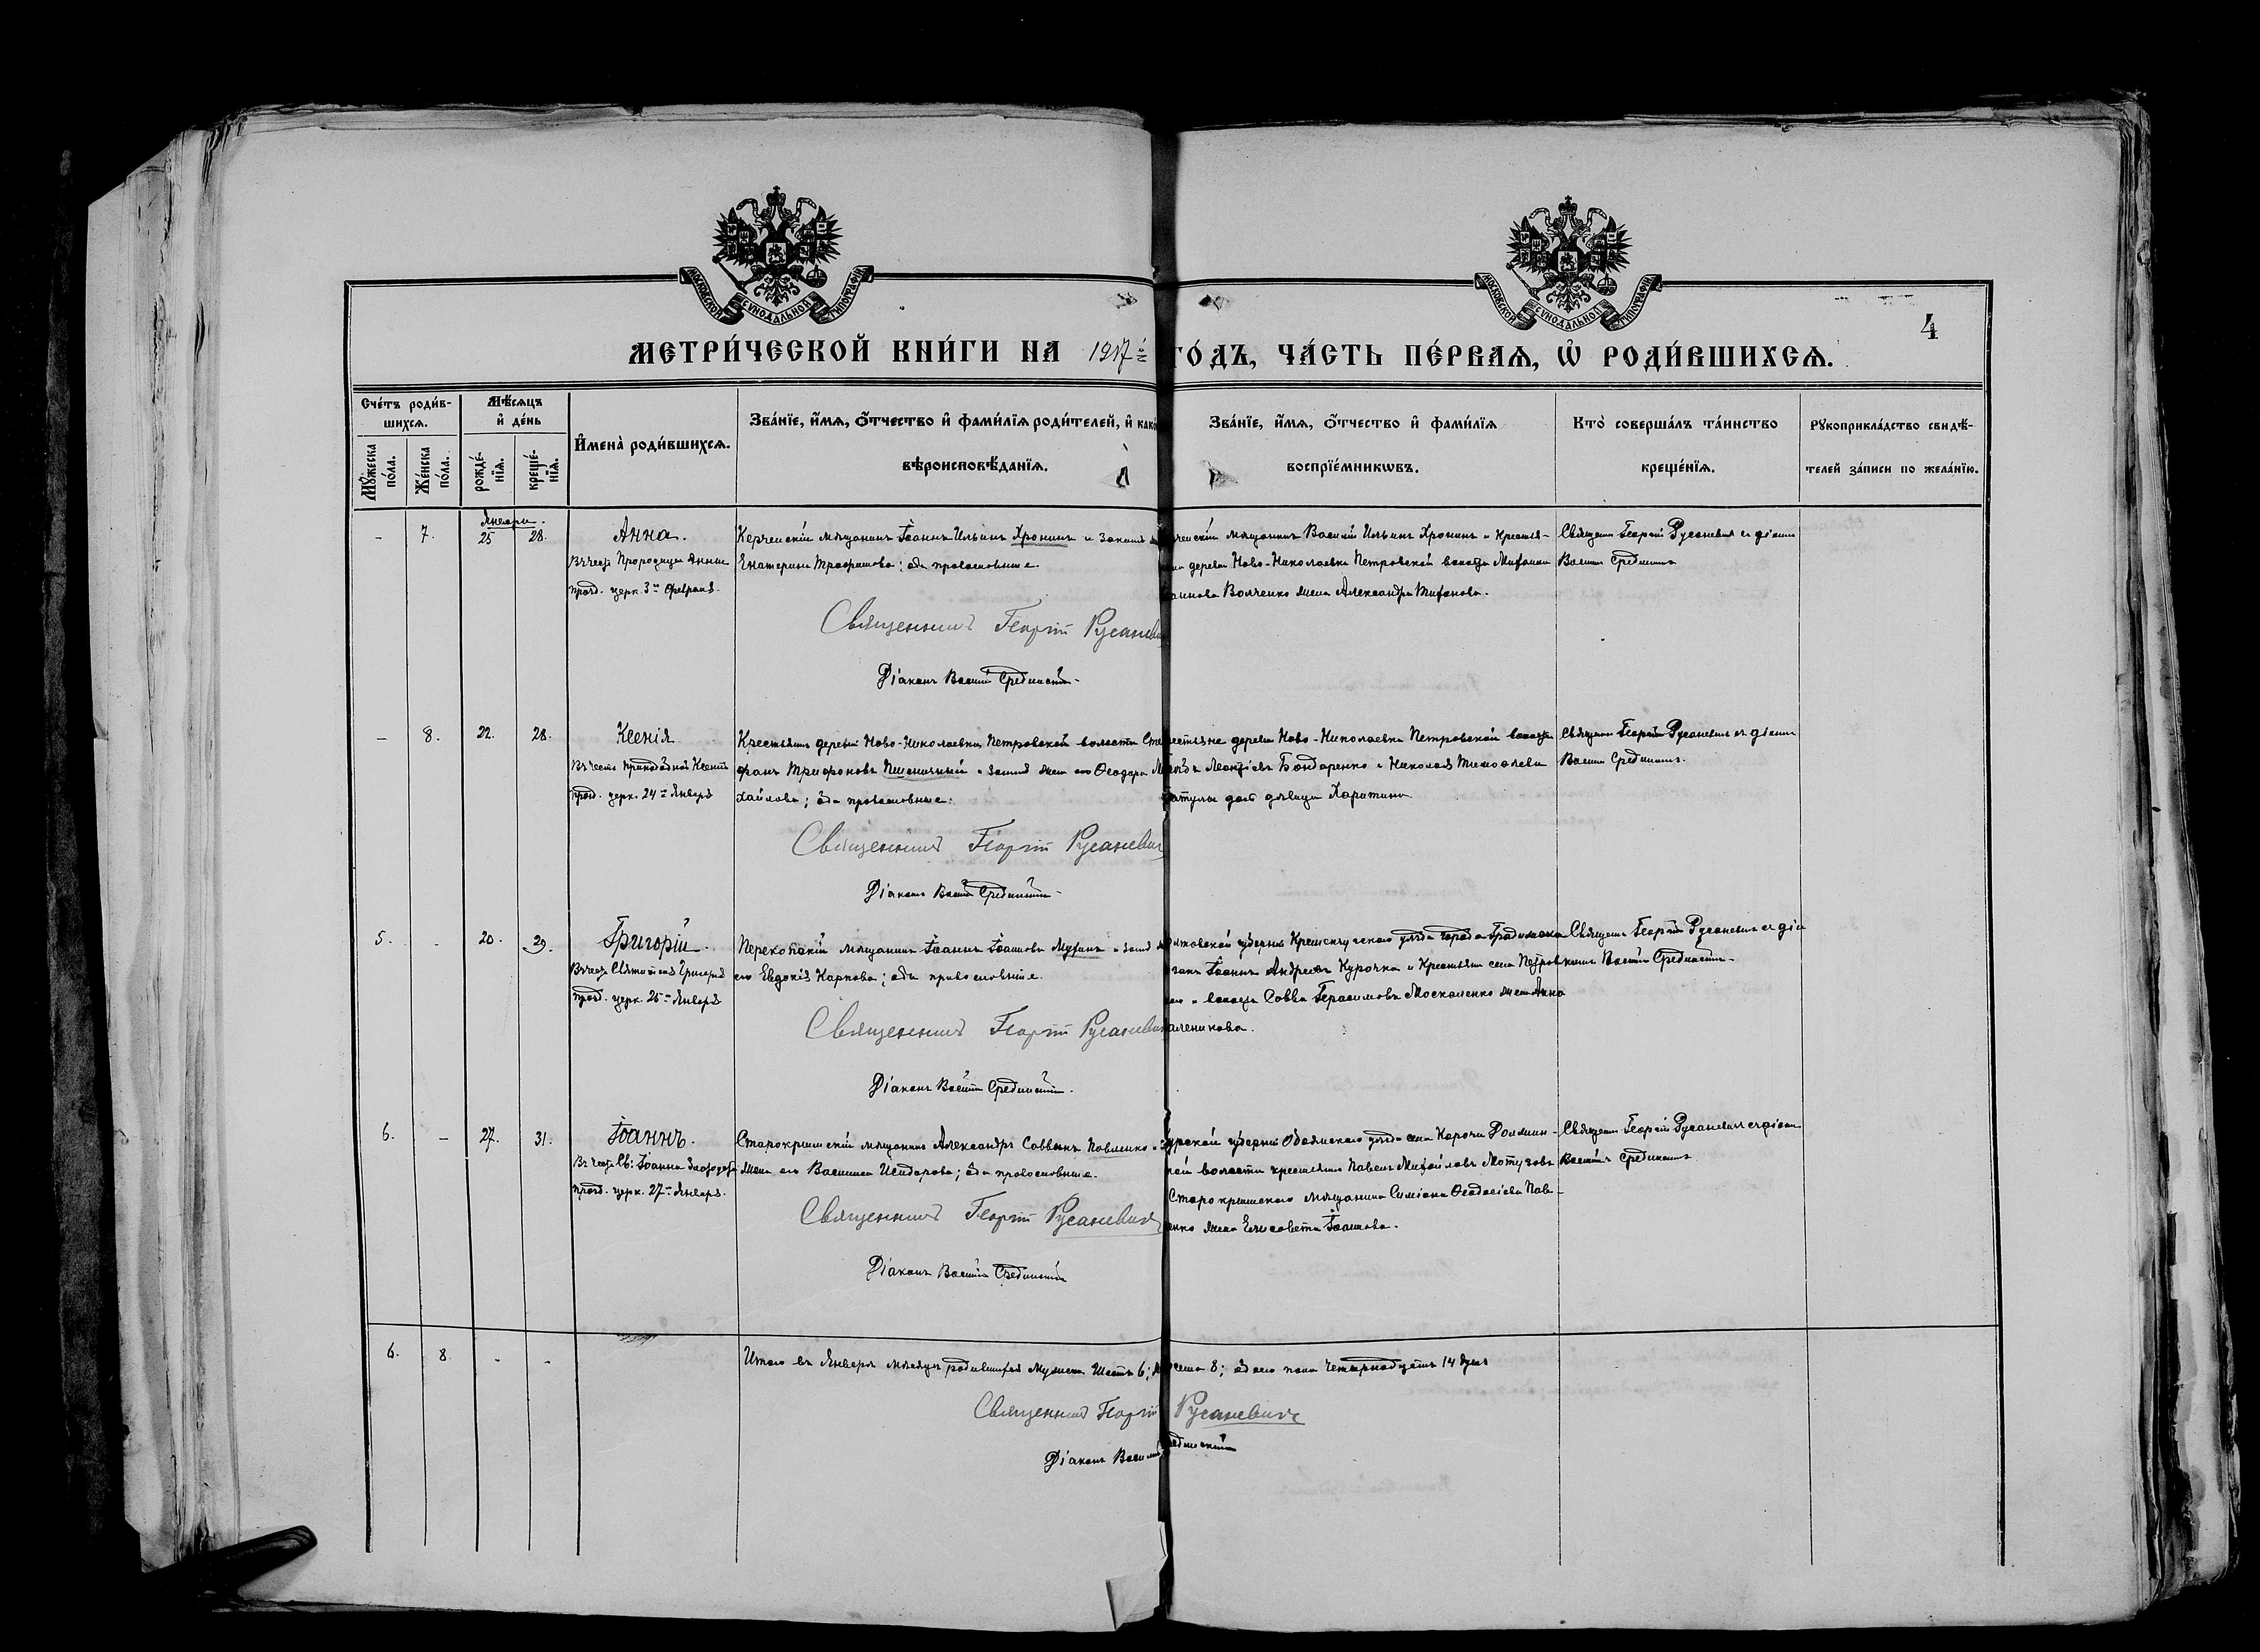 МОСКОВСКОЙ СѴНОДАЛЬНОЙ ТИПОГРАФІИ
МОСКОВСКОЙ СѴНОДАЛЬНОЙ ТИПОГРАФІИ
4
МЕТРИ́ЧЕСКОЙ КНИ́ГИ НА 1917й ГО́ДЪ, ЧА́СТЬ ПЕ́РВАЯ, Ѡ҆ РОДИ́ВШИХСЯ.
Сче́тъ роди́в-
шихсѧ.
Мꙋ́жеска по́ла.
Же́нска по́ла.
Мѣ́сѧцъ
и҆ де́нь
рожде́-
нїѧ.
креще́-
нїѧ.
И҆мена̀ роди́вшихсѧ.
Зва́нїе, и҆́мѧ, ѻ҆́тчество и҆ фами́лїѧ роди́телей, и҆ како
вѣроисповѣ́данїѧ.
Зва́нїе, и҆́мѧ, ѻ҆́тчество и҆ фами́лїѧ
воспрїе́мникѡвъ.
Кто̀ соверша́лъ та́инство
креще́нїѧ.
Рꙋкоприкла́дство свидѣ́-
телей за́писи по жела́нїю.
Январь.
- 7. 25 28. Анна.
Въ честь Пророчицы Анны
празд. церк. 3го Февраля.
Керченскій мѣщанинъ Іоаннъ Ильинъ Хронинъ и законная
Екатерина Трофимова; оба православные.
Священникъ Георгій Русаневи
Діаконъ Василій Срединскій
ченскій мѣщанинъ Василій Ильинъ Хронинъ и крестья-
деревни Ново-Николаевки Петровской волости
Волченко жена Александра Тифанова.
Священникъ Георгій Русаневичъ съ діакон
Василій Срединскій
- 8. 22. 28. Ксенія
Въ честь Преподобной Ксеніи
празд. церк. 24го Января
Крестьянинъ деревни Ново-Николаевки Петровской волости Сте
фанъ Трифоновъ Пшеничный и законная жена его Ѳеодора Ми
хайлова; оба православные.
Священникъ Георгій Русаневич
Діаконъ Василій Срединскій
естьяне деревни Ново-Николаевки Петровской волости
Леонтіевъ Бондаренко и Николая Тимоѳеева
дочь дѣвица Харитина
Священникъ Георгій Русаневичъ съ діакон
Василій Срединскій.
5. - 20. 29. Григорій.
Въ честь Святителя Григорія
празд. церк. 25го Января
Перекопскій мѣщанинъ Іоаннъ Іоанновъ и законная
его Евдокія Карпова; оба православные.
Священникъ Георгій Русаневич
Діаконъ Василій Срединскій.
лтавской губерніи Кременчугскаго уѣзда города Градижска
Іоаннъ Андреевъ Курочка и крестьянина села Петров
и волости Савва Герасимова Москаленко жена Анна
Священникъ Георгій Русаневичъ съ діа
Василій Срединскій
6. - 27. 31. Іоаннъ.
Въ честь Св. Іоанна Златоуста
празд. церк. 27го Января.
Старокрымскій мѣщанинъ Александръ Саввинъ Павленко и
жена его Василиса Исидорова; оба православные.
Священникъ Георгій Русаневичъ
Діаконъ Василій Срединскій
урской губерніи Обоянскаго уѣзда села Корочи
ной волости крестьянинъ Павелъ Михайловъ Мотузовъ
Старокрымскаго мѣщанина Симеона Ѳеодосіева Пав-
енко жена Елисавета Іоаннова.
Священникъ Георгій Русаневичъ съ діакон
Василій Срединскій
6. 8. - -
Итого въ Январѣ мѣсяцѣ родившихся мужеска Шесть 6; женска 8; обоего пола Четырнадцать 14 душъ
Священникъ Георгій Русаневичъ
Діаконъ Василій Срединскій